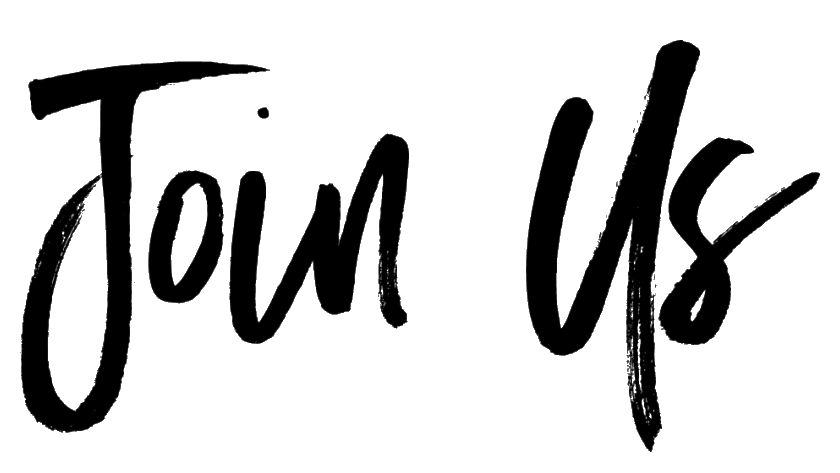 Join Us